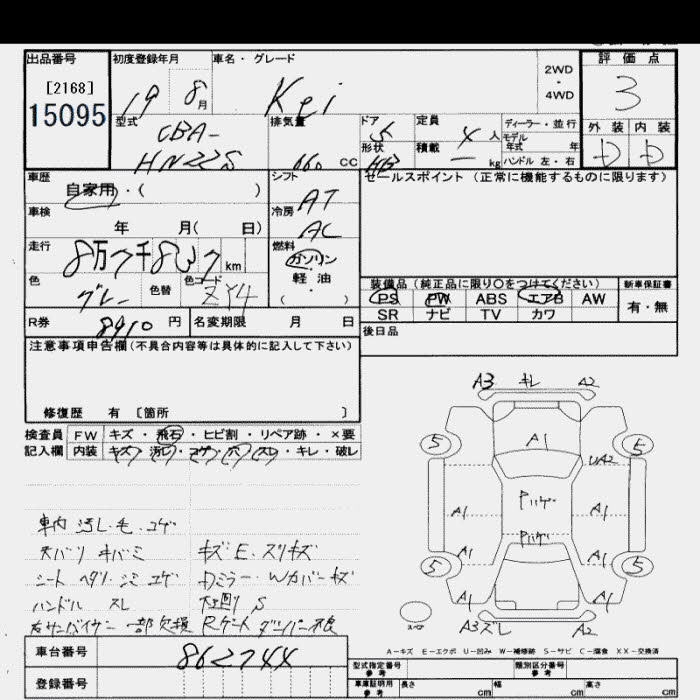 出品番号 初度登録年月 車名・グレード 評価点
[2168]
15095
19 8月 Kei
2WD
・
4WD
3
型式 排気量 ドア 定員 ディーラー・並行 外装 内装
CBA- 5 4人 モデル
年式 年
HN22S 660 CC 形状 HB 積載 ー kg ハンドル 左・右 D D
車歴 シフト セールスポイント (正常に機能するものに限ります)
自家用・( ) AT
車検 冷房
年 月( 日) AC
走行 燃料
8万7千837 km ガソリン
軽油
( ・ )
色 色替 色コード
グレー ZY4
装備品(純正品に限り○をつけてください) 新車保証書
PS PW ABS エアB AW 有・無
SR ナビ TV カワ
R券 8910 円 名変期限 月 日
後日品
注意事項申告欄(不具合内容等は具体的に記入して下さい)
修復歴 有 [箇所 ]
検査員 FW キズ・飛石・ヒビ割・リペア跡・×要
記入欄 内装 キズ・汚レ・コゲ・穴・スレ・キレ・破レ
A3 キレ A2
5 A1 5
UA2
Pハゲ
A1 A1
Pハゲ
A1 A1
5 5
A1 A1
スペア
A3 ズレ A2
車内 汚レ・毛、コゲ
天バリ キバミ キズE、スリキズ
シート ヘタリ・シミ コゲ Dミラー・Wカバーキズ
ハンドル スレ 下回り S
右サンバイザー 一部欠損 Rゲート ダンパー不良
A-キズ E-エクボ U-凹み W-補修跡 S-サビ C-腐食 XX-交換済
車台番号 862744
登録番号
型式指定番号 参考 類別区分番号 参考
車庫証明用 参考 長さ cm 幅 cm 高さ cm